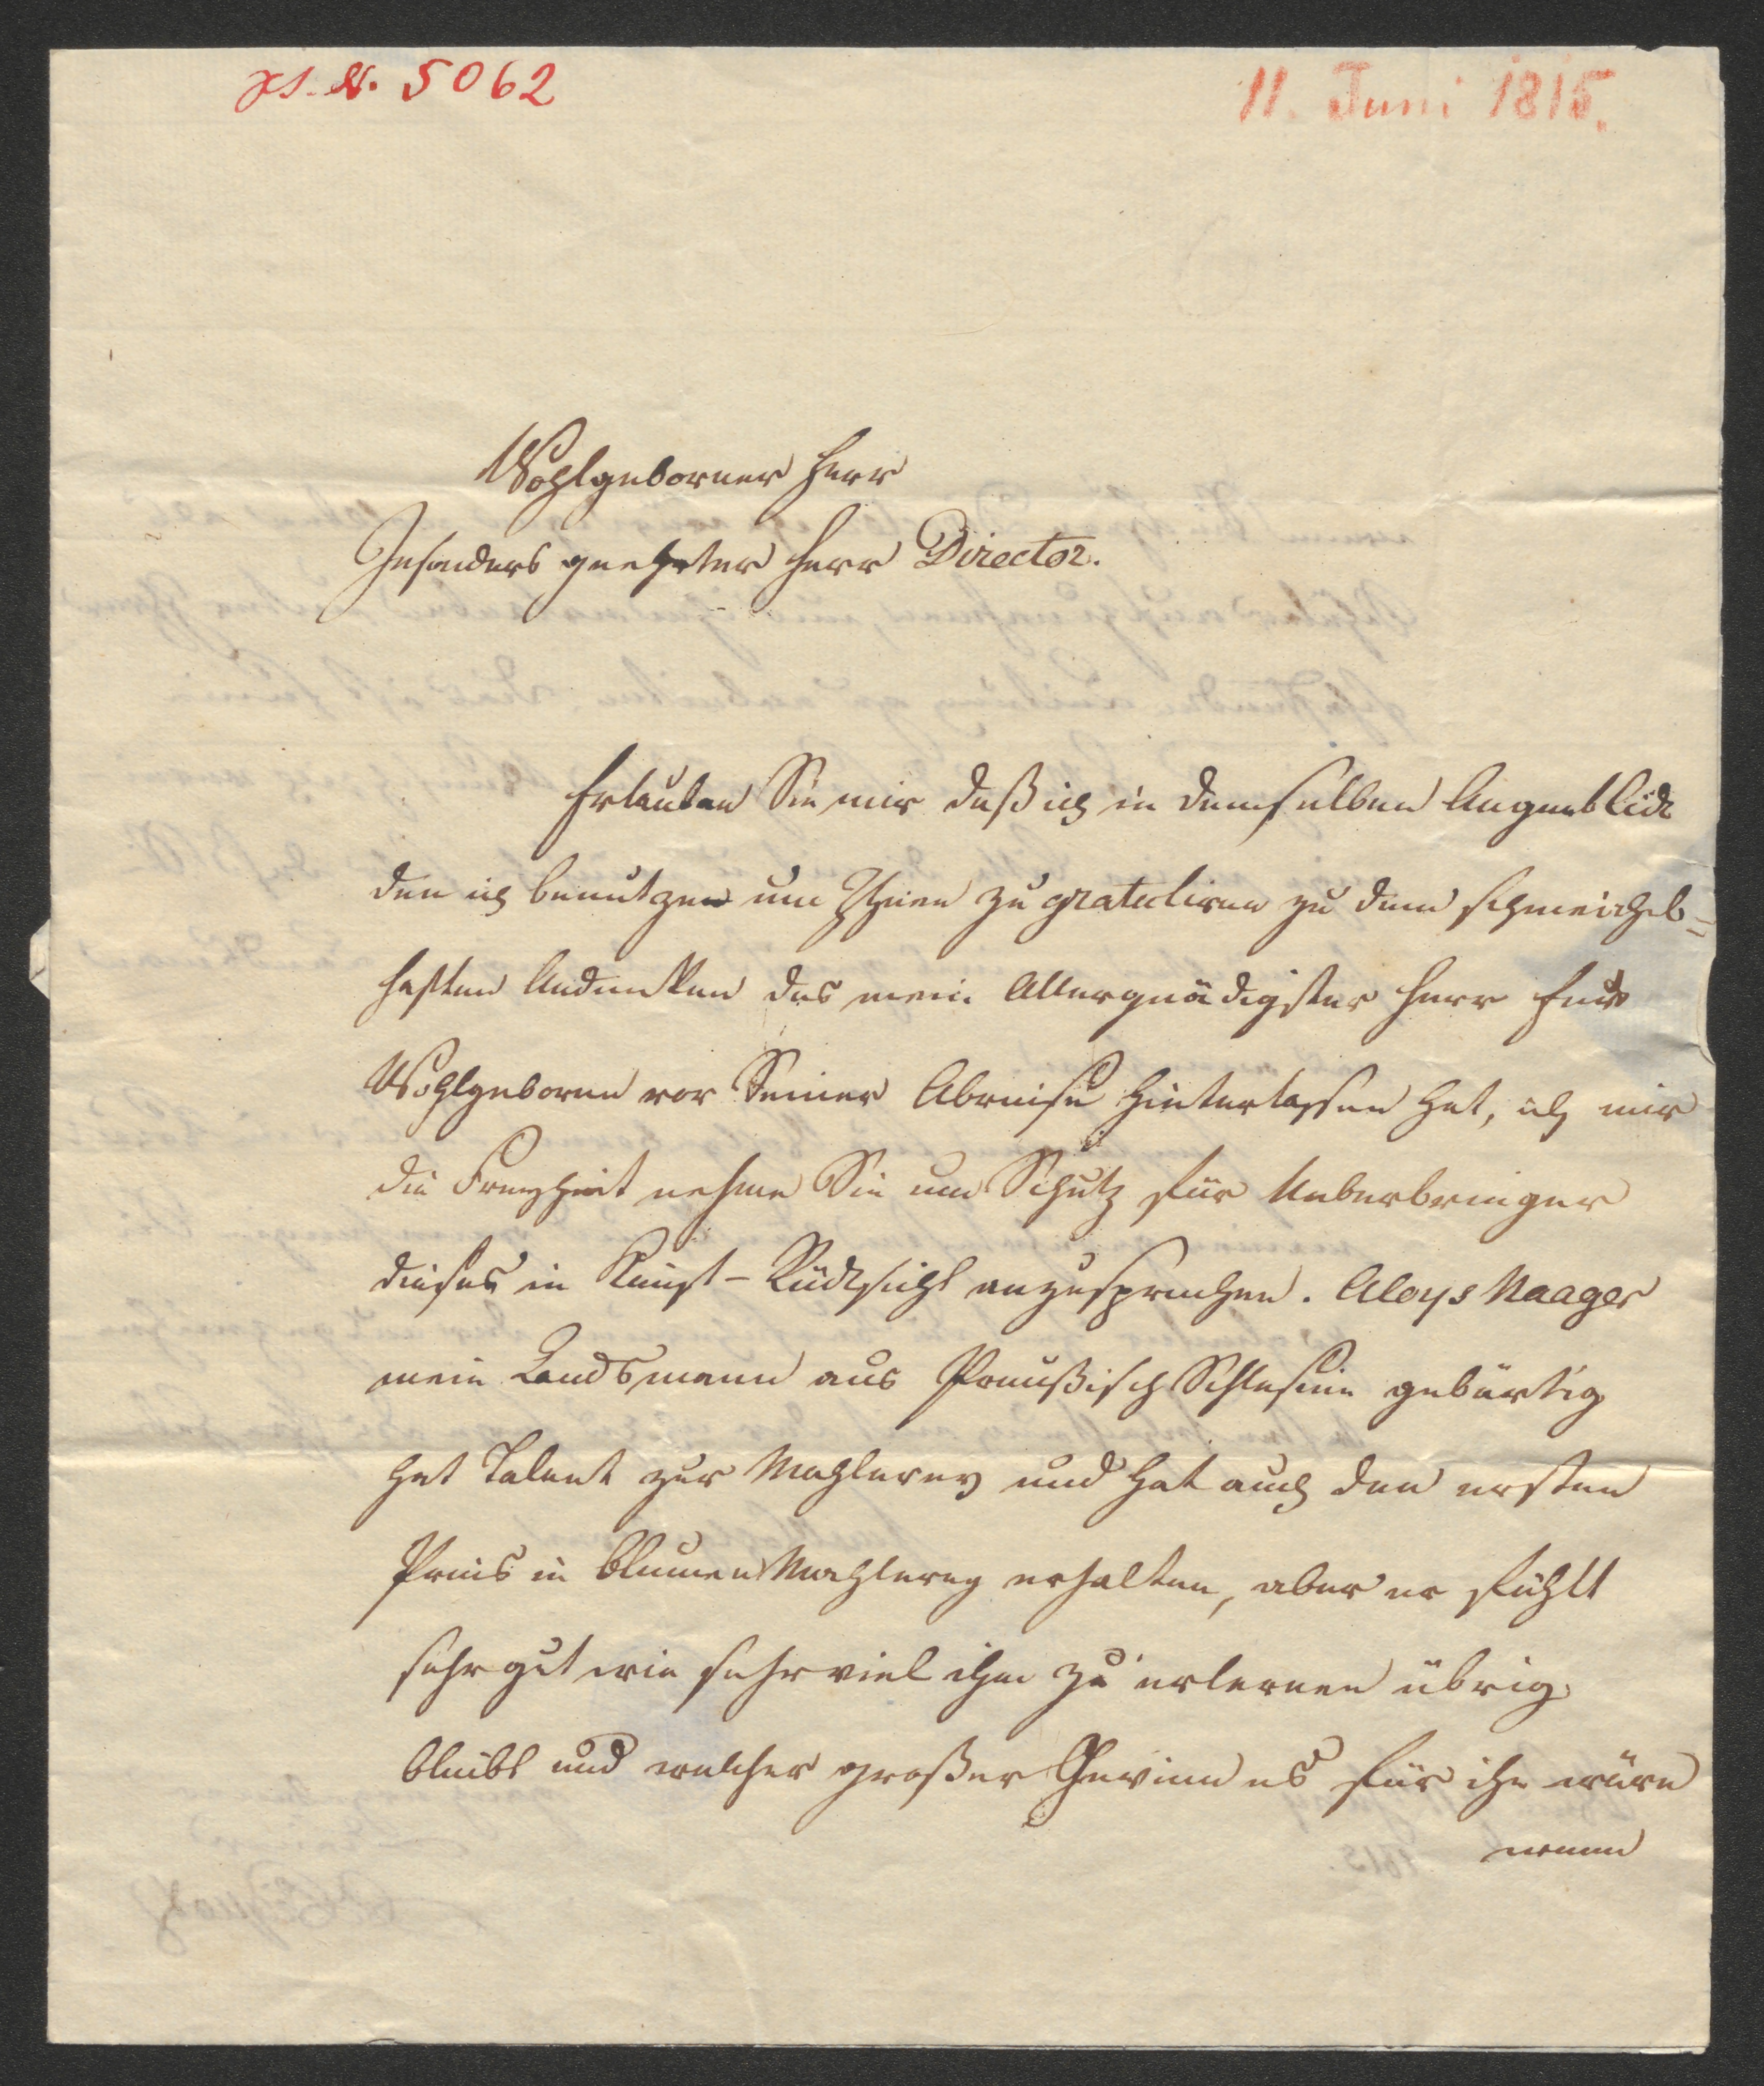 H. I. N. 5062
11. Juni 1815.
Wohlgeborner Herr
Insonders geehrter Herr Director.
Erlauben Sie mir daß ich in demselben Augenblick
den ich benutzen um Ihnen zu gratuliren zu dem schmeichel=
haften Andenken das mein Allergnädigster Herr Euer
Wohlgeboren vor Seiner Abreise hinterlassen hat, ich mir
die Freyheit nehme Sie um Schutz für Ueberbringer
dieses in Kunst-Rücksicht anzusprechen. Aloys Naager
mein Landsmann aus Preußisch Schlesien gebürtig
hat Talent zur Mahlerey und hat auch den ersten
Preis in Blumen Mahlerey erhalten, aber er fühlt
sehr gut wie sehr viel ihm zu erlernen übrig
bleibt und welcher großer Gewinn es für ihn wäre
wenn